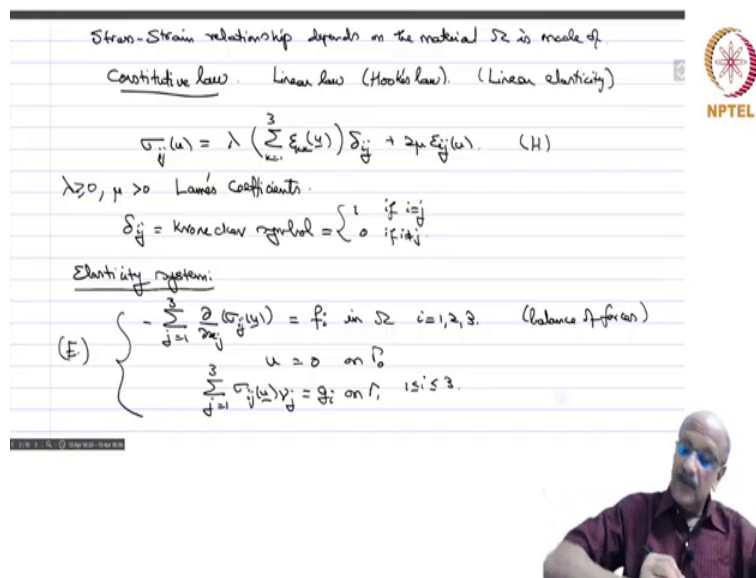 Stress-Strain relationship depends on the material Ω is made of.
Constitutive law. Linear law (Hooke's law). (Linear elasticity)
σ_ij(u) = λ ( Σ_{k=1}^{3} ε_kk(u) ) δ_ij + 2μ ε_ij(u). (H)
λ≥0, μ >0 Lamé's Coefficients.
δ_ij = Kronecker symbol = { 1 if i=j
0 if i≠j.
Elasticity system:
(E) { - Σ_{j=1}^{3} ∂/∂x_j (σ_ij(u)) = f_i in Ω i=1,2,3. (balance of forces)
u = 0 on Γ_0
Σ_{j=1}^{3} σ_ij(u) ν_j = g_i on Γ_1 1≤i≤3.
NPTEL